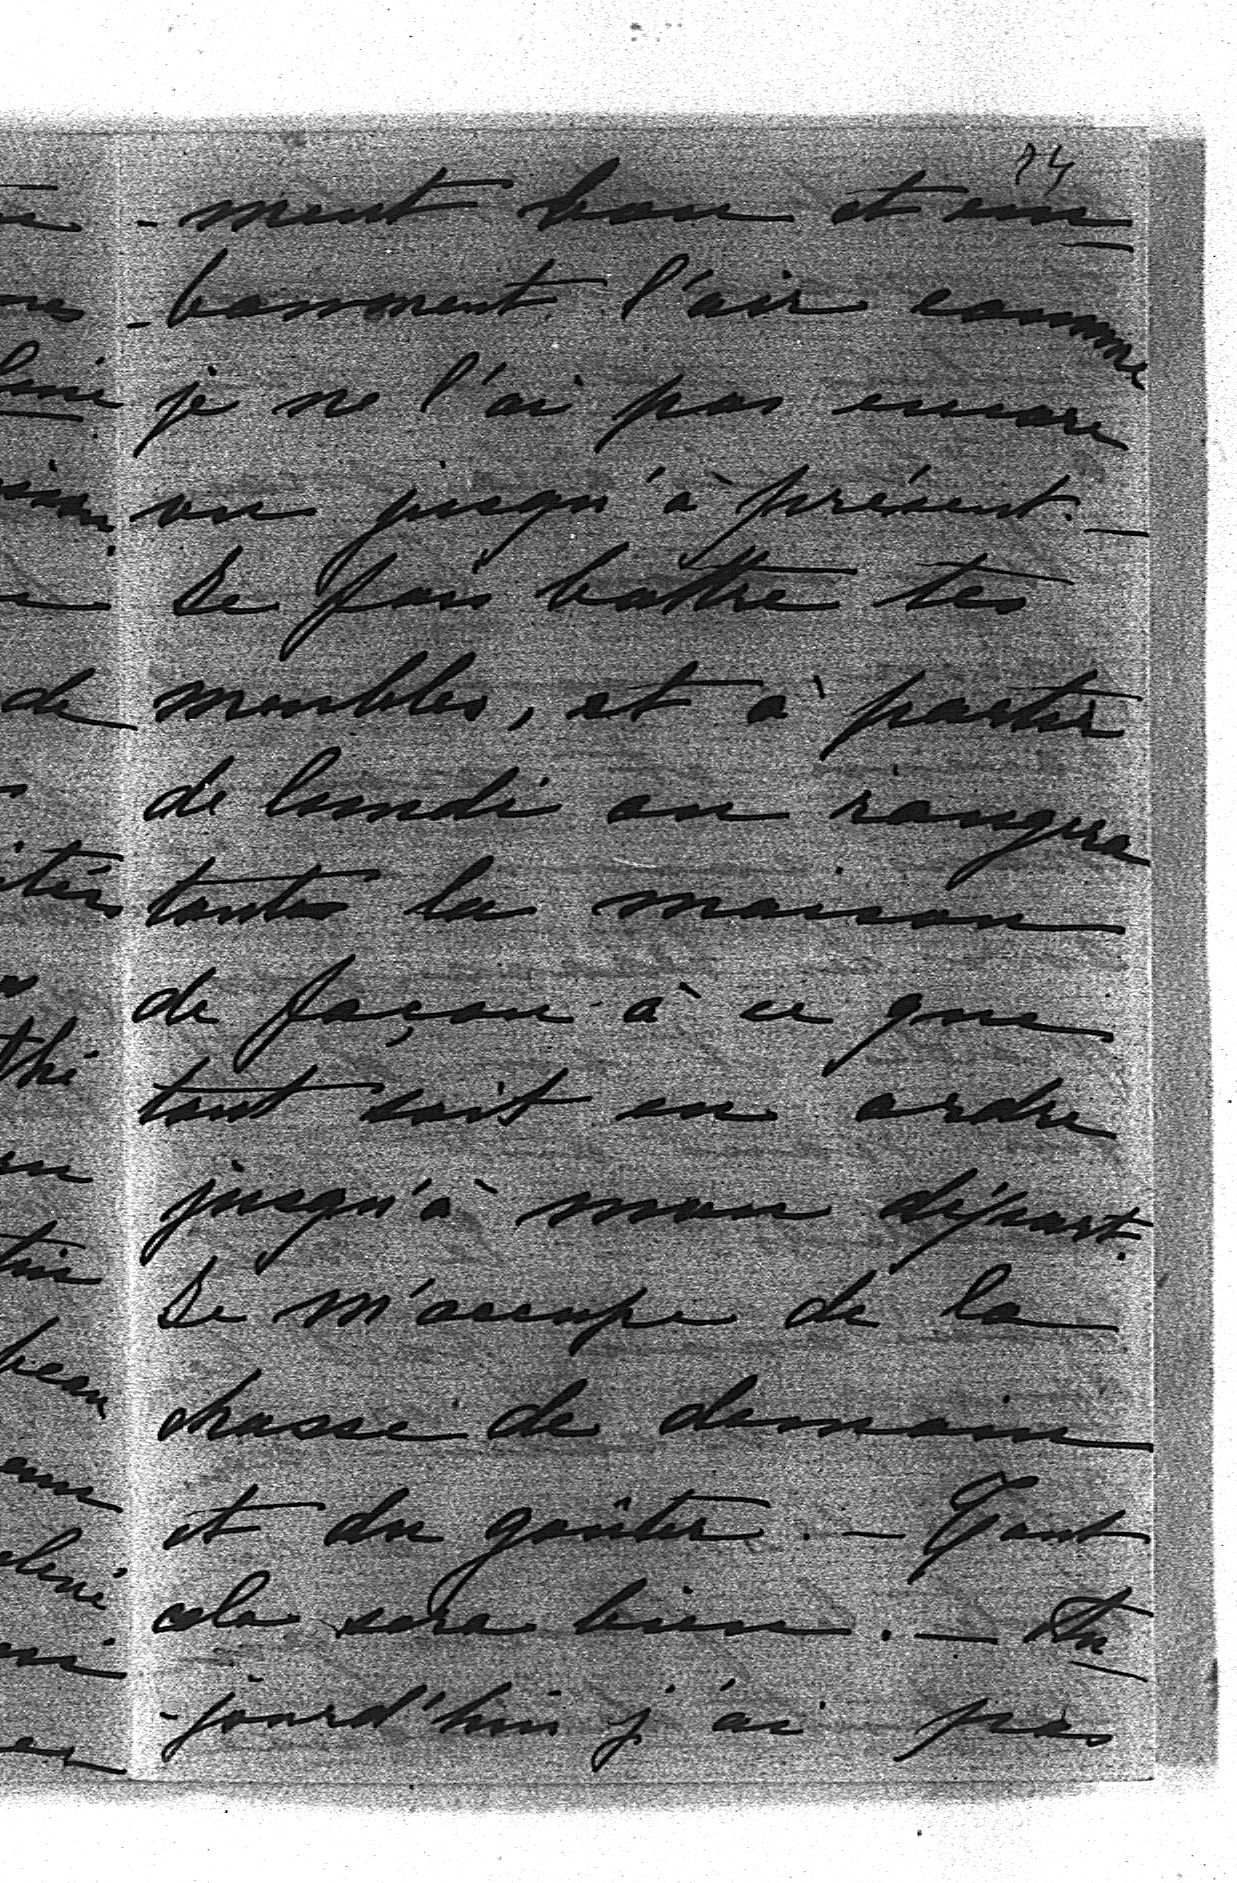 -ment bon et em
-baument l'air comme
je ne l'ai pas encore
vu jusqu'à présent. —
Je fais battre tes
meubles, et à partir
de lundi on rangera
toute la maison
de façon à ce que
tout soit en ordre
jusqu'à mon départ.
Je m'occupe de la
chasse de demain
et du goûter. — Tout
cela sera bien. — Au
-jourd'hui j'ai pas